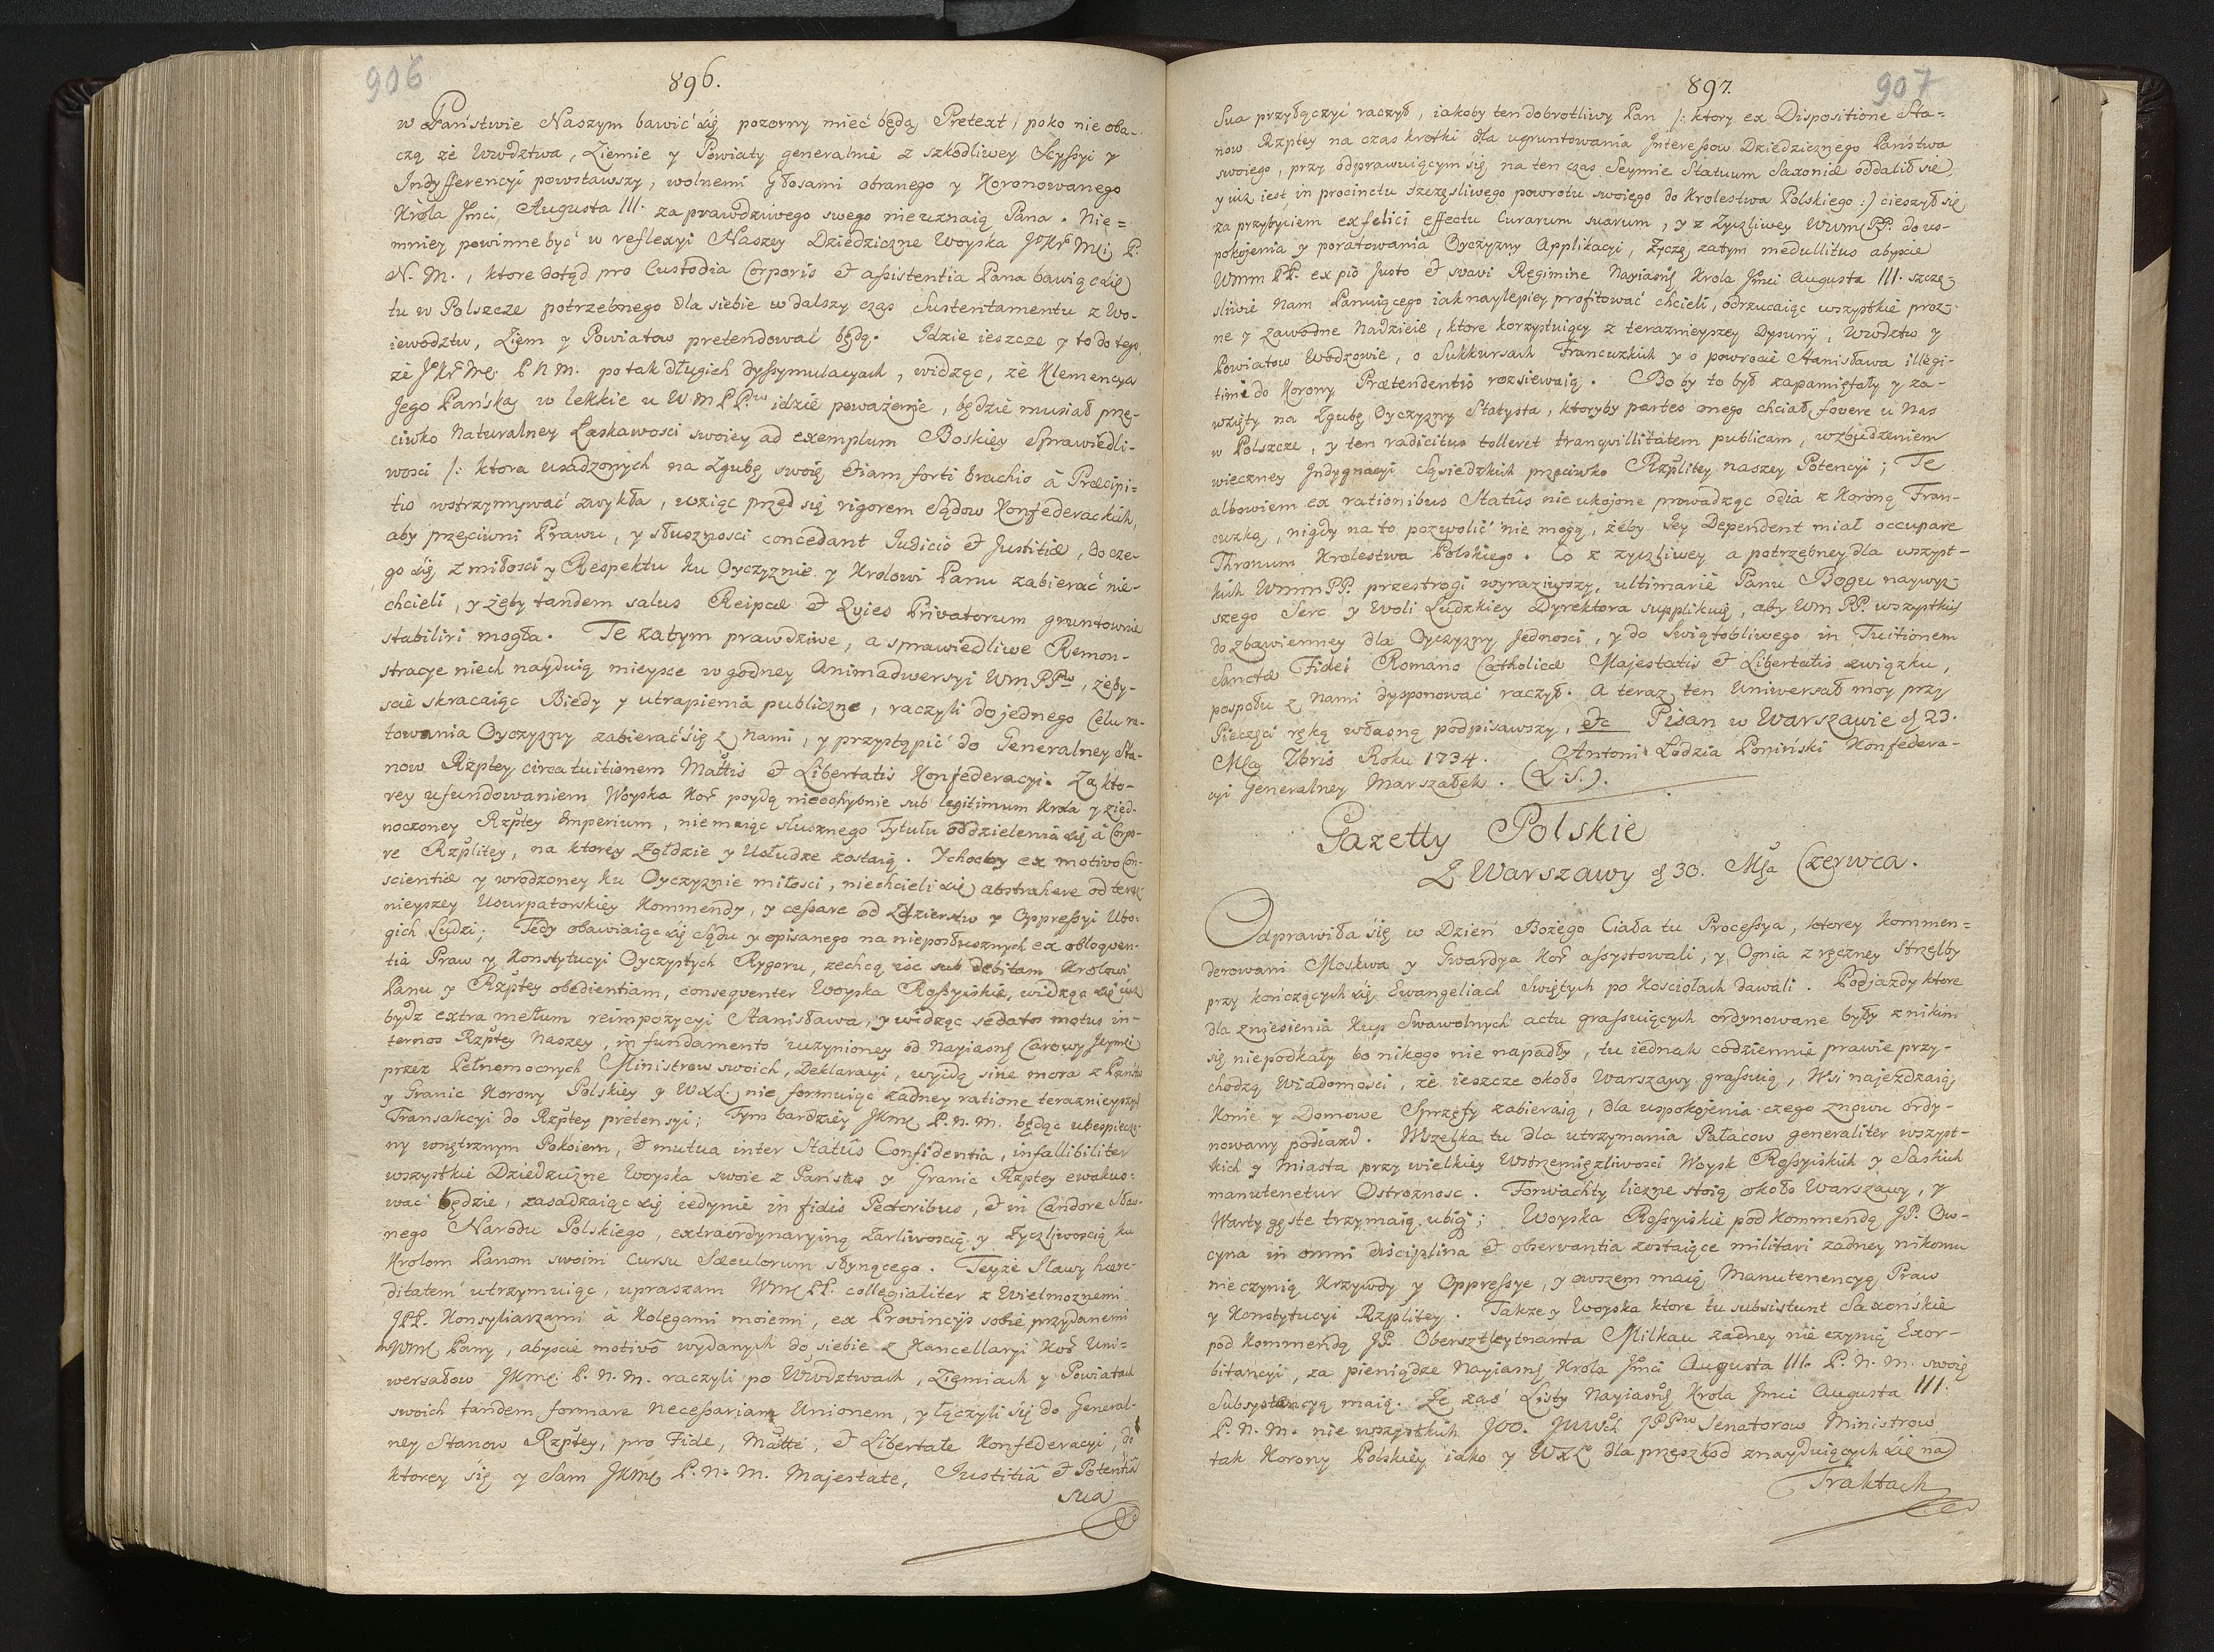 906
896.
w Państwie Naszym bawić się pozorny mieć będą Pretext, poko nie oba-
czą że Wwdztwa, Ziemie y Powiaty generalnie z szkodliwey Scyssyi y
Indyfferencyi powstawszy, wolnemi głosami obranego y Koronowanego
Króla Jmci Augusta III. za prawdziwego swego nieuznaią Pana. Nie=
mniey powinne być w reflexyi Naszey Dziedziczne Woyska JoKr Mci P.
N. M., ktore dotąd pro Custodia Corporis et assistentia Pana bawiąc się
tu w Polszcze potrzebnego dla siebie w dalszy czas Sustentamentu z Wo-
iewodztw, Ziem y Powiatow pretendować będą. Idzie ieszcze y to do tego,
że JoKr Mć. P. N. M. po tak długich dyssymulacyach, widząc, że Klemencya
Jego Pańska w lekkie u WMPPw idzie poważenie, będzie musiał prze-
ciwko Naturalney Łaskawosci swoiey ad exemplum Boskiey Sprawiedli-
wosci /: ktora usadzonych na Zgubę swoię etiam forti brachio à Præcipi=
tio wstrzymywać zwykła, wziąc przed się rigorem Sądow Konfederackich,
aby przeciwni Prawu, y słusznosci concedant Iudicio et Justitiæ, do cze-
go się z miłosci y Respektu ku Oyczyznie y Krolowi Panu zabierać nie-
chcieli, y żeby tandem salus Reipcæ et Quies Privatorum gruntownie
stabiliri mogła. Te zatym prawdziwe, a sprawiedliwe Remon-
stracye niech nayduią mieysce w godney Animadwersyi WmPPw, żeby-
scie skracaiąc Biedy y utrapienia publiczne, raczyli do jednego Celu ra-
towania Oyczyzny zabierać się z Nami, y przystąpić do Generalney Sta-
now Rzptey circa tuitionem Mattis et Libertatis Konfederacyi. Za kto-
rey ufundowaniem Woyska Kor poydą nieochybnie sub legitimum Krola y zied-
noczoney Rzptey Imperium, niemaiąc słusznego Tytułu oddzielenia się à Corpo-
re Rzplitey, na ktorey Żołdzie y Usłudze zostaią. Y choćby ex motivo Con-
scientiæ y wrodzoney ku Oyczyznie miłosci, niechcieli się abstrahere od teraz-
nieyszey Usurpatorskiey Kommendy, y cessare od Zdzierstw y Oppressyi Ubo-
gich Ludzi; Tedy obawiaiąc się Sądu y opisanego na nieposłusznych ex obloquen-
tia Praw y Konstytucyi Oyczystych Rygoru, zechcą iść sub debitam Krolowi
Panu y Rzptey obedientiam, consequenter Woyska Rossyiskie, widząc się iuż
bydz extra metum reimpozycyi Stanisława, y widząc sedatos motus in-
ternos Rzptey Naszey, in fundamento uczynioney od Nayiasn Carowy Jeymci
przez Pełnomocnych Ministrow swoich, Deklaracyi, wyjdą sine mora z Państw
y Granic Korony Polskiey y WXL. nie formuiąc żadney ratione teraznieyszych
Transakcyi do Rzptey pretensyi; Tym bardziey JKMć P. N. M. będąc ubespieczo-
ny wnętrznym Pokoiem, et mutua inter Status Confidentia, infallibiliter
wszystkie Dziedziczne Woyska swoie z Państw y Granic Rzptey ewakuo-
wać będzie, zasadzaiąc się iedynie in fidis Pectoribus, et in Candore Sław-
nego Narodu Polskiego, extraordynaryiną Żarliwoscią y Życzliwoscią ku
Krolom Panom swoim Cursu Sæculorum słynącego. Teyże Sławy hære-
ditatem utrzymuiąc, upraszam WmćPP. collegialiter z Wielmoznemi
JPP. Konsyliarzami à Kolegami moiemi, ex Provincijs sobie przydanemi
Wmć Pany, abyscie motivo wydanych do siebie z Kancellaryi Kor Uni-
wersałow JKMć P. N. M. raczyli po Wwdztwach, Ziemiach y Powiatach
swoich tandem formare necessariam Unionem, y łączyli się do General-
ney Stanow Rzptey, pro Fide, Matte, et Libertate Konfederacyi, do
ktorey się y Sam JKMć P. N. M. Majestate, Justitiâ et Potentiâ
sua
897.
907
Sua przyłączyć raczył, iakoby ten dobrotliwy Pan /: ktory ex Dispositione Sta=
now Rzptey na czas krotki dla ugruntowania Interessow Dziedzicznego Państwa
swoiego, przy odprawuiącym się na ten czas Seymie Statuum Saxoniæ oddalił się,
y iuż iest in procinctu szczęsliwego powrotu swoiego do Krolestwa Polskiego :/ cieszył się
za przybyciem ex felici effectu Curarum suarum, y z Życzliwey WwmćPP. do us-
pokojenia y poratowania Oyczyzny Applikacyi, Życzę zatym medullitus abyscie
Wmm PP. ex pio Justo et suavi Regimine Nayiasń Krola Jmci Augusta III. szczę-
sliwie Nam Panuiącego iak naylepiey profitować chcieli, odrzucaiąc wszystkie proz-
ne y Zawodne Nadzieie, ktore korzystuiący z teraznieyszey Dysunij, Wwdztw y
Powiatow Wodzowie, o Sukkursach Francuzkich y o powrocie Stanisława illegi-
timè do Korony Prætendentis rozsiewaią. Bo by to był zapamiętały y za-
wzięty na Zgubę Oyczyzny Statysta, ktoryby partes onego chciał fovere u Nas
w Polszcze, y ten radicitus tolleret tranquillitatem publicam, wzbudzeniem
wieczney Indygnacyi Sąsiedzkich przeciwko Rzplitey naszey Potencyi; Te
albowiem ex rationibus Status nie ukojone prowadząc odia z Koroną Fran-
cuzką, nigdy na to pozwolić nie mogą, żeby Jey Dependent miał occupare
Thronum Krolestwa Polskiego. Co z zyczliwey a potrzebney dla wszyst-
kich WmmPP. przestrogi wyraziwszy, ultimariè Panu Bogu naywyż-
szego Serc y Woli Ludzkiey Dyrektora supplikuię, aby Wm PP. wszystkich
do zbawienney dla Oyczyzny Jednosci, y do Swiątobliwego in Tuitionem
Sanctæ Fidei Romano Catholicæ Majestatis et Libertatis związku,
pospołu z Nami dysponować raczył. A teraz ten Uniwersał moy przy
Pieczęci ręką własną podpisawszy, etc Pisan w Warszawie d 23.
Mca 7bris Roku 1734. Antoni Łodzia Poniński Konfedera-
cyi Generalney Marszałek. (L.S.).
Gazetty Polskie
Z Warszawy d 30. Mca Czerwca.
Odprawiła się w Dzień Bożego Ciała tu Processya, ktorey kommen=
derowani Moskwa y Gwardya Kor assystowali, y Ognia z ręczney Strzelby
przy kończących się Ewangeliach Swiętych po Kosciołach dawali. Podjazdy ktore
dla zniesienia Kup Swawolnych actu grassuiących ordynowane były z nikim
się niepodkały bo nikogo nie napadły, tu iednak codziennie prawie przy-
chodzą Wiadomosci, że ieszcze około Warszawy grassuią, Wsi najeżdzaią
Konie y Domowe Sprzęty zabieraią, dla uspokojenia czego znowu ordy-
nowany podiazd. Wszelka tu dla utrzymania Pałacow generaliter wszyst-
kich y Miasta przy wielkiey Wstrzemięzliwosci Woysk Rossyiskich y Saskich
manutenetur Ostroznosc. Forwachty liczne stoią około Warszawy, y
Warty gęste trzymaią ubiq; Woyska Rossyiskie pod Kommendą JP. Ow-
cyna in omni disciplina et observantia zostaiące militari żadney nikomu
nie czynią Krzywdy y Oppressye, y owszem maią Manutenencyą Praw
y Konstytucyi Rzplitey. Takze y Woyska ktore tu subsistunt Saxońskie
pod Kommendą JP. Obersztleytnanta Milkau żadney nie czynią Exor-
bitancyi, za pieniądze Nayiasń Krola Jmci Augusta III. P. N. M. swoię
Subsystencyą maią. Że zaś Listy Nayiasń Krola Jmci Augusta III.
P. N. M. nie wszystkich JOO. JWWch JPPw Senatorow Ministrow
tak Korony Polskiey iako y WXLo dla przeszkod znayduiących się na
Traktach